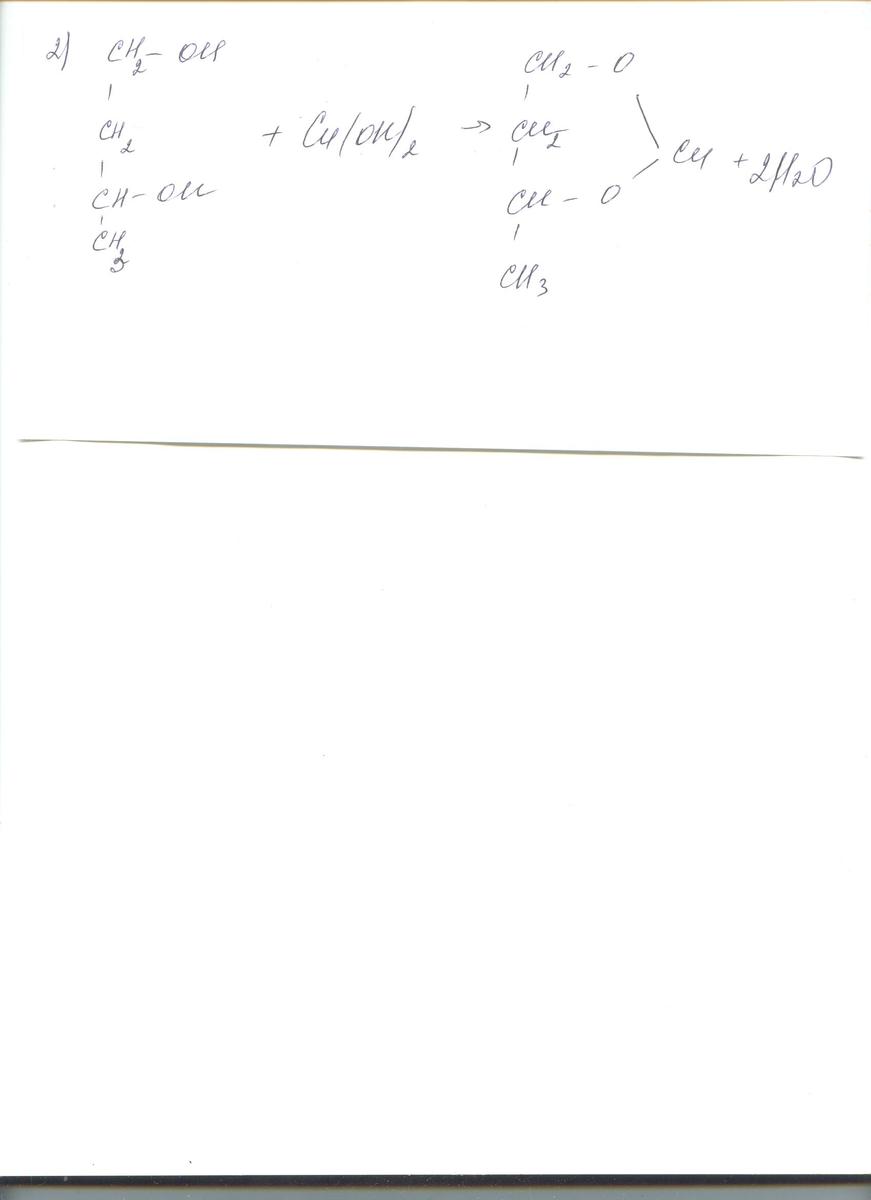 2) CH2 - OH
CH2
CH - OH
CH3
+ Cu(OH)2 →
CH2 - O
CH2
CH - O
CH3
Cu + 2H2O